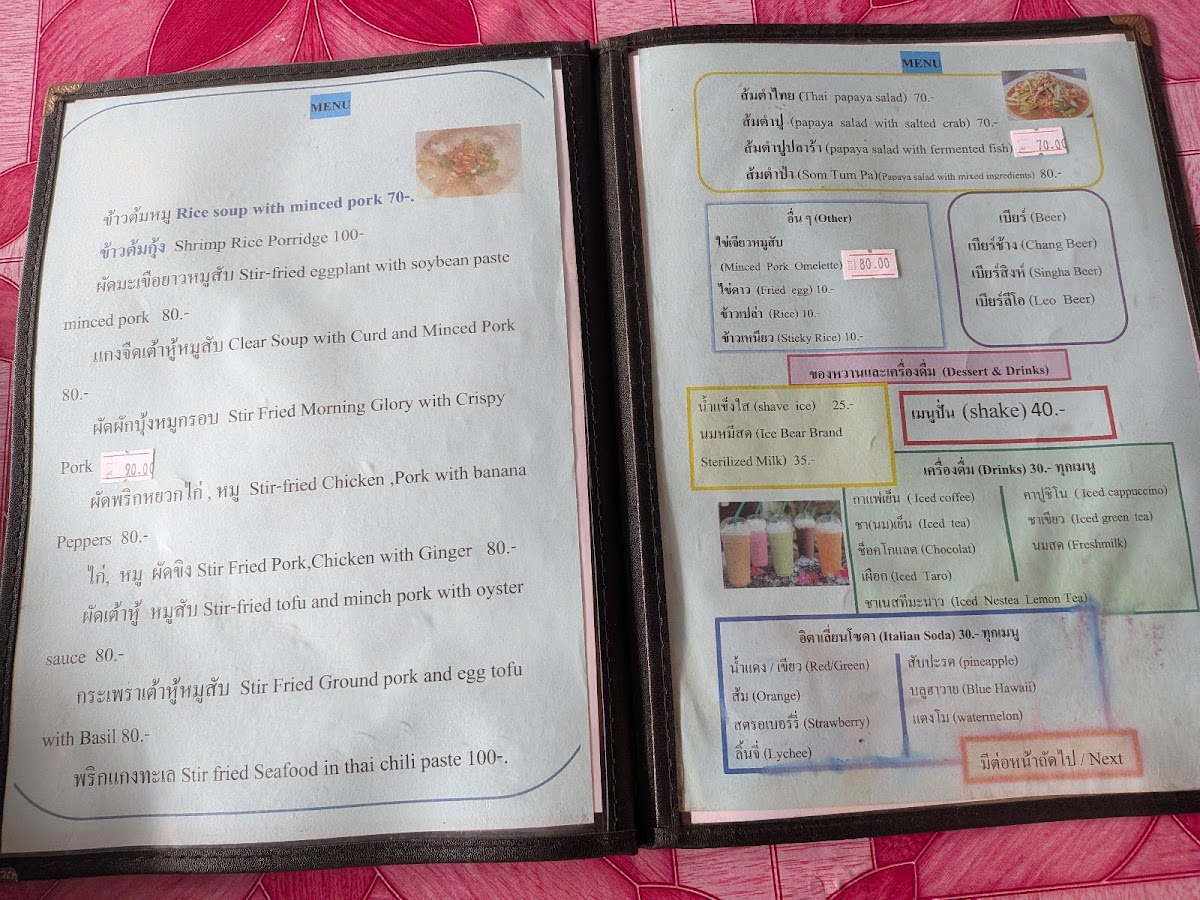 MENU
ข้าวต้มหมู Rice soup with minced pork 70-.
ข้าวต้มกุ้ง Shrimp Rice Porridge 100-
ผัดมะเขือยาวหมูสับ Stir-fried eggplant with soybean paste
minced pork 80.-
แกงจืดเต้าหู้หมูสับ Clear Soup with Curd and Minced Pork
80.-
ผัดผักบุ้งหมูกรอบ Stir Fried Morning Glory with Crispy
Pork 90.00
ผัดพริกหยวกไก่ , หมู Stir-fried Chicken ,Pork with banana
Peppers 80.-
ไก่, หมู ผัดขิง Stir Fried Pork,Chicken with Ginger 80.-
ผัดเต้าหู้ หมูสับ Stir-fried tofu and minch pork with oyster
sauce 80.-
กระเพราเต้าหู้หมูสับ Stir Fried Ground pork and egg tofu
with Basil 80.-
พริกแกงทะเล Stir fried Seafood in thai chili paste 100-.
MENU
ส้มตำไทย (Thai papaya salad) 70.-
ส้มตำปู (papaya salad with salted crab) 70.-
ส้มตำปูปลาร้า (papaya salad with fermented fish) 70.00
ส้มตำป่า (Som Tum Pa)(Papaya salad with mixed ingredients) 80.-
อื่น ๆ (Other)
ไข่เจียวหมูสับ
(Minced Pork Omelette) 80.00
ไข่ดาว (Fried egg) 10.-
ข้าวเปล่า (Rice) 10.-
ข้าวเหนียว (Sticky Rice) 10.-
เบียร์ (Beer)
เบียร์ช้าง (Chang Beer)
เบียร์สิงห์ (Singha Beer)
เบียร์ลีโอ (Leo Beer)
ของหวานและเครื่องดื่ม (Dessert & Drinks)
น้ำแข็งใส (shave ice) 25.-
นมหมีสด (Ice Bear Brand
Sterilized Milk) 35.-
เมนูปั่น (shake) 40.-
เครื่องดื่ม (Drinks) 30.- ทุกเมนู
กาแฟเย็น ( Iced coffee)
ชา(นม)เย็น (Iced tea)
ช็อคโกแลต (Chocolat)
เผือก (Iced Taro)
ชาเนสทีมะนาว (Iced Nestea Lemon Tea)
คาปูชิโน ( Iced cappuccino)
ชาเขียว (Iced green tea)
นมสด (Freshmilk)
อิตาเลี่ยนโซดา (Italian Soda) 30.- ทุกเมนู
น้ำแดง / เขียว (Red/Green)
ส้ม (Orange)
สตรอเบอร์รี่ (Strawberry)
ลิ้นจี่ (Lychee)
สับปะรด (pineapple)
บลูฮาวาย (Blue Hawaii)
แตงโม (watermelon)
มีต่อหน้าถัดไป / Next